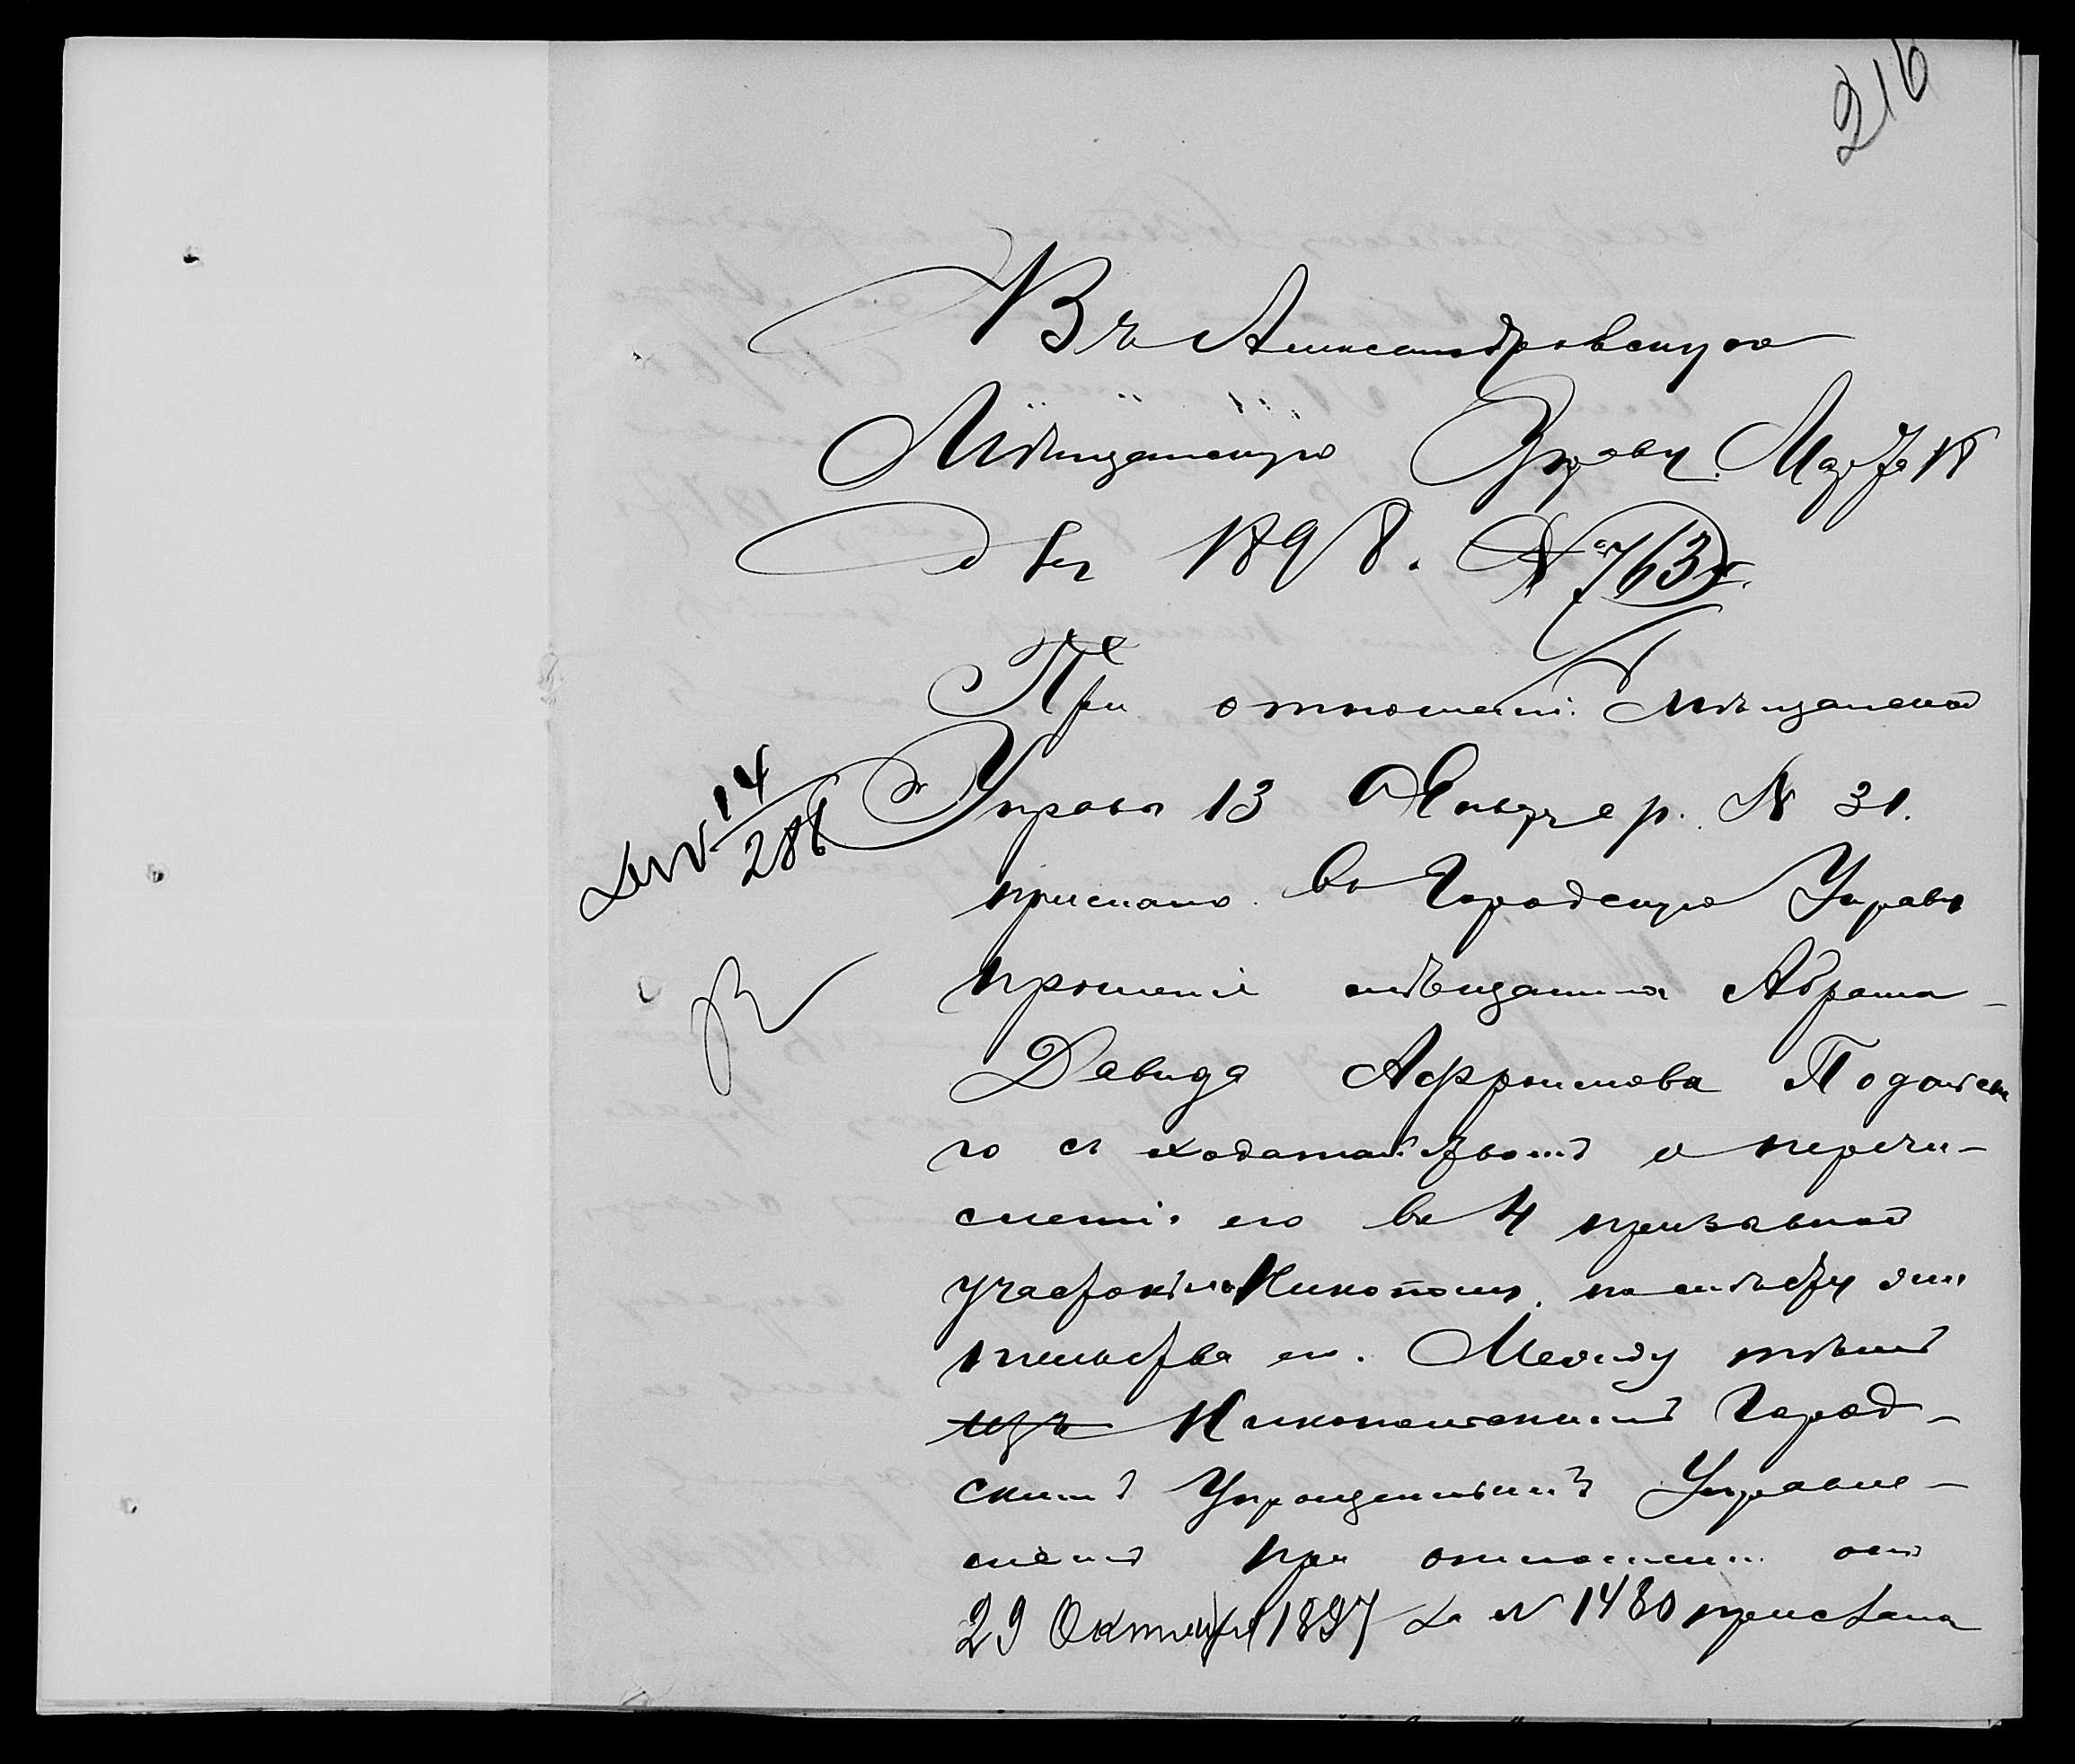 216
Въ Александровскую
Мѣщанскую Управу. Марта 18
дня 1898. № 763
При отношеніи Мѣщанской
Управы 13 Января с. г. № 31.
№ 14
286
прислано въ Городскую Управу
прошеніе мѣщанина Абрама-
Давида Афроимова Подольска
го съ ходатайствомъ о перечи-
сленіи его въ 4 призывной
участокъ Никополь, по мѣсту жи
тельства его. Между тѣмъ
изъ Никопольскимъ Город-
скимъ Упрощеннымъ Управле-
ніемъ при отношеніи отъ
29 Октября 1897 за № 1480 прислана